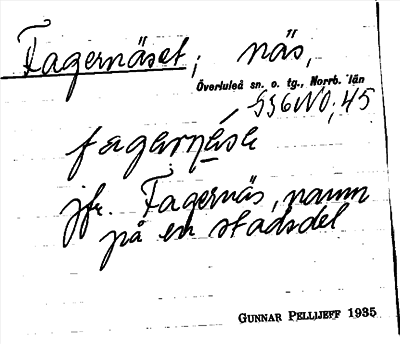 Fagernäset; näs,
Överluleå sn. o. tg., Norrb. län
S56NO; 45
fagernäse
jfr. Fagernäs, namn
på en stadsdel
GUNNAR PELLIJEFF 1935